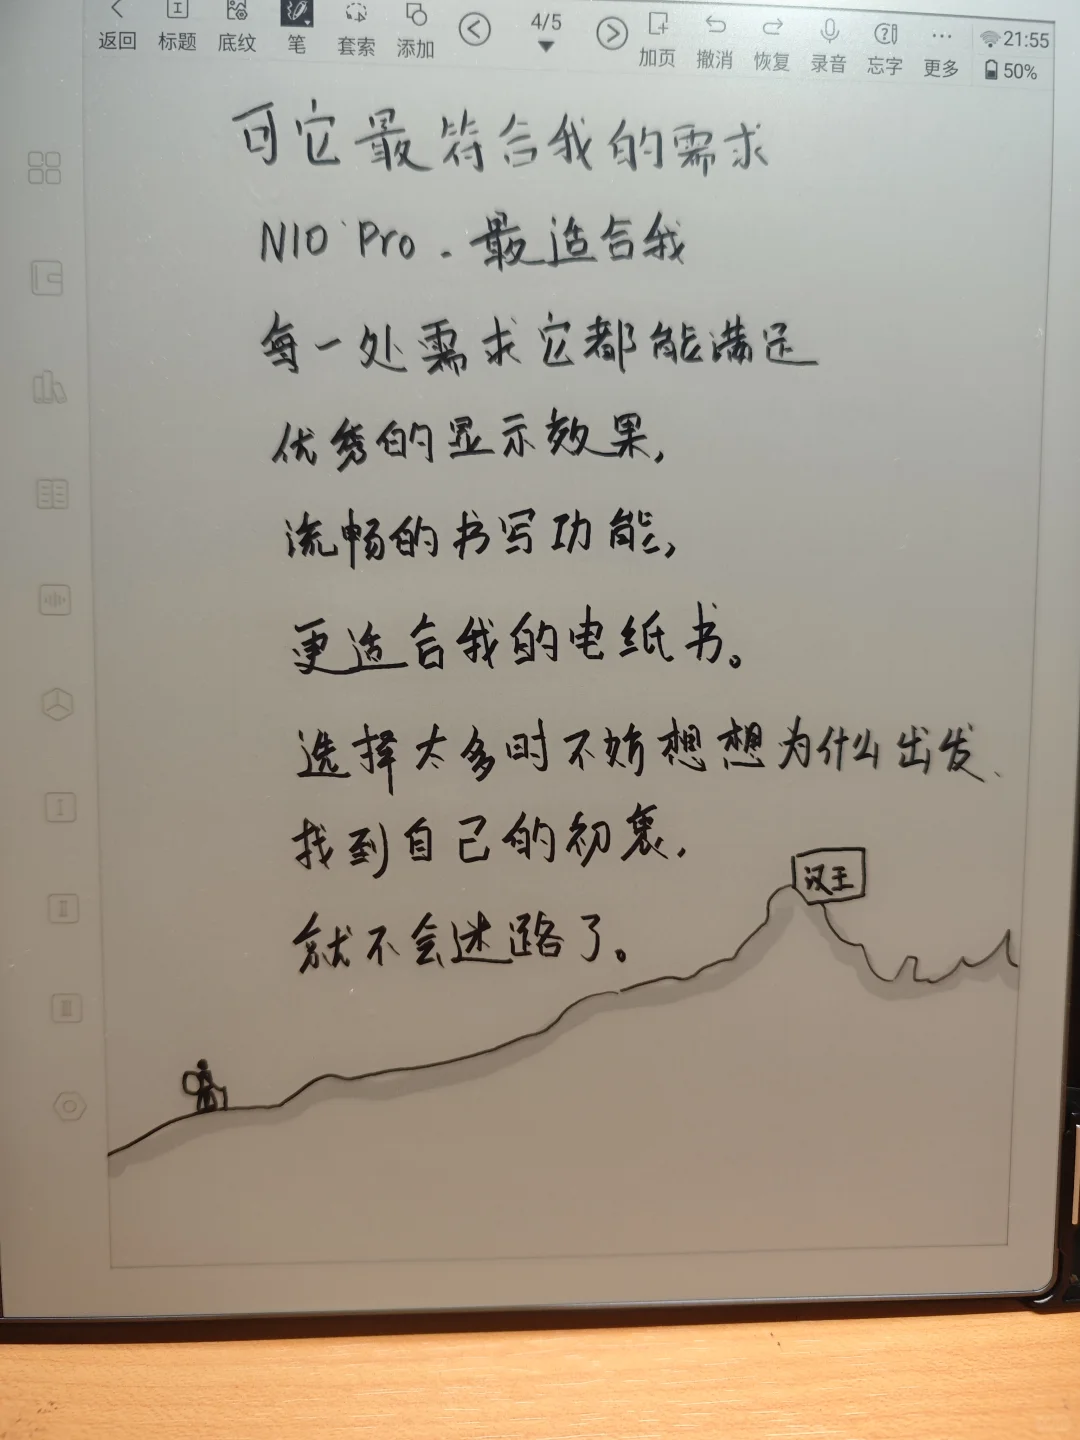 返回 标题 底纹 笔 套索 添加 4/5 加页 撤消 恢复 录音 忘字 更多 21:55 50%
可它最符合我的需求
N10 Pro.最适合我
每一处需求它都能满足
优秀的显示效果,
流畅的书写功能,
更适合我的电纸书。
选择太多时不妨想想为什么出发、
找到自己的初衷,
就不会迷路了。
汉王